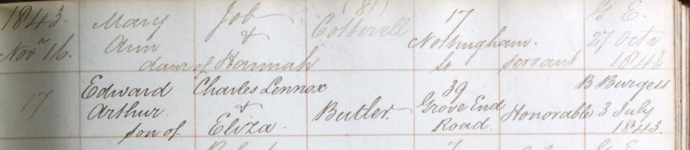 1843. Mary Job (81) 17 G. E.
Novr 16. Ann & Cotterell Nottingham. 27 Octr
daur of Hannah St servant 1843
Edward Charles Lennox 39 B. Burgess
17 Arthur & Butler Grove End Honorable 3 July
son of Eliza. Road. 1843.